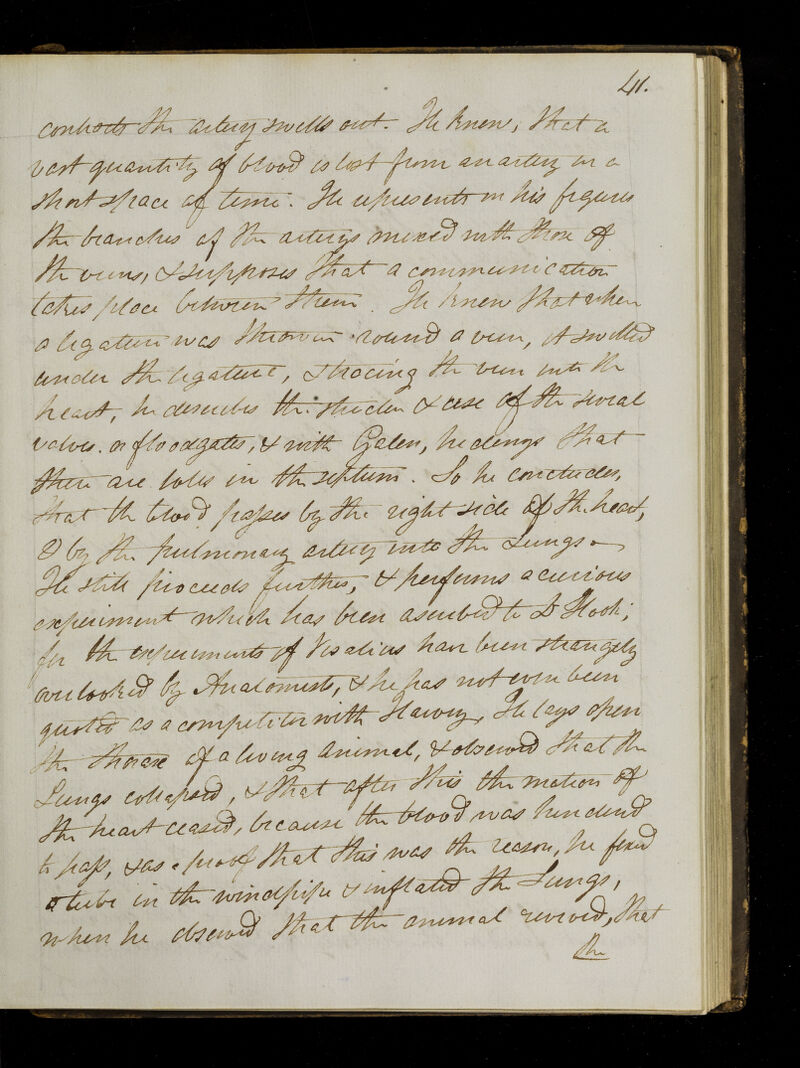 41.
contracts the artery swells out. He knew, that a
vast quantity of blood is lost from an artery in a
short space of time. He represents in his figures
the branches of the arterys mixed with those of
the veins, & supposes that a communication
takes place between them. He knew that when
a ligature was thrown round a vein, it swelled
under the ligature, & tracing the vein into the
heart, he describes the & use of the several
valves. or floodgates, & with Galen, he denys that
there are holes in the septum. So he concludes,
that the blood passes by the right side of the heart,
& by the pulmonary artery into the Lungs –
He still proceeds further, & performs a curious
experiment which has been ascribed to Dr Hook;
for the experiments of Vesalius have been strangely
overlooked by Anatomists, & he has not even been
quoted as a competitor with Harvey, He lays open
the thorax of a living animal, & observed that the
Lungs collapsed, & that after this the motion of
the heart ceased, because the blood was hindered
to pass, & as a proof that this was the reason, he fixed
a tube in the windpipe & inflated the Lungs,
when he observed that the animal revived, that
the